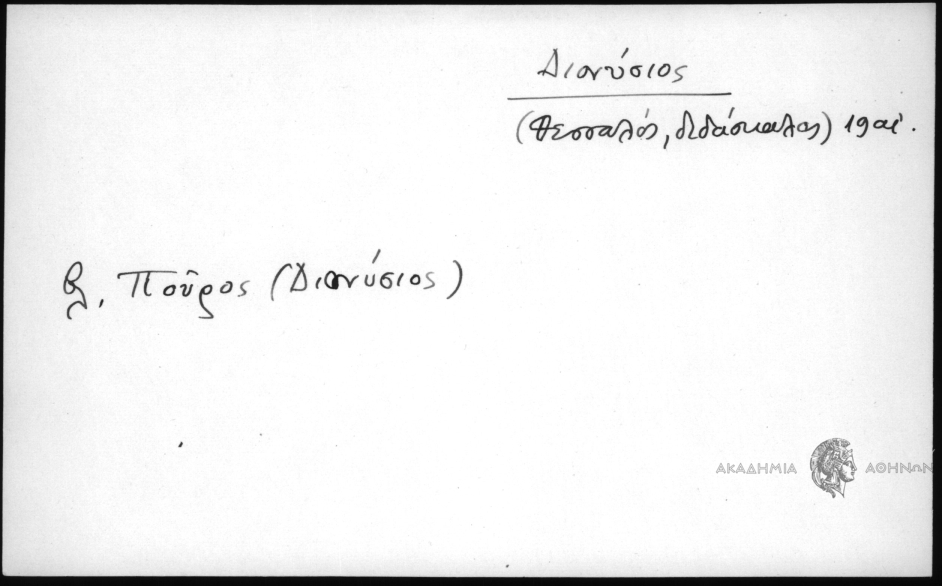 Διονύσιος
(Θεσσαλός, διδάσκαλος) 19 αἰ.
βλ. Ποῦρος (Διονύσιος)
ΑΚΑΔΗΜΙΑ ΑΘΗΝΩΝ